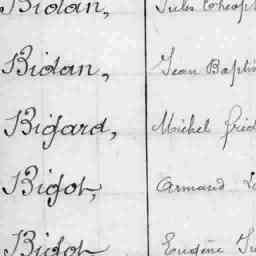 Bidan, Jules
Bidan, Jean Bapti
Bigard, Michel
Bigot, Armand
Bigot Eugène